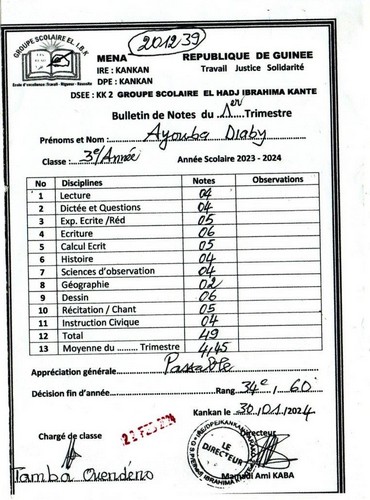 GROUPE SCOLAIRE EL I.B.K
Ecole d'excellence Travail - Rigueur - Réussite
(201239)
MENA REPUBLIQUE DE GUINEE
IRE : KANKAN Travail Justice Solidarité
DPE : KANKAN
DSEE : KK 2 GROUPE SCOLAIRE EL HADJ IBRAHIMA KANTE
Bulletin de Notes du 1er Trimestre
Prénoms et Nom : Ayouba Diaby
Classe : 3e/Année Année Scolaire 2023 - 2024
No Disciplines Notes Observations
1 Lecture 04
2 Dictée et Questions 04
3 Exp. Ecrite /Réd 05
4 Ecriture 06
5 Calcul Ecrit 05
6 Histoire 04
7 Sciences d'observation 04
8 Géographie 02
9 Dessin 06
10 Récitation / Chant 05
11 Instruction Civique 04
12 Total 49
13 Moyenne du ......... Trimestre 4,45
Appréciation générale Passable
Décision fin d'année Rang 34e / 60
Kankan le 30/01/2024
Chargé de classe Directeur
LE DIRECTEUR
Mamadi Ami KABA
Tamba Ouendeno